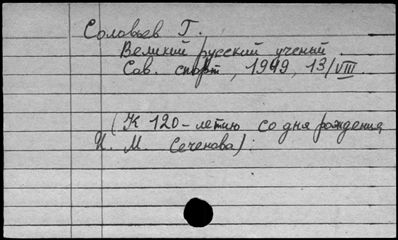 Соловьев Г.
Великий русский ученый.
Сов. спорт, 1949, 13/VIII.
(К 120-летию со дня рождения
И. М. Сеченова).